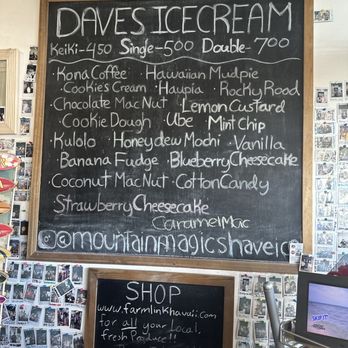 DAVES ICECREAM
Keiki-450 Single-500 Double-700
·Kona Coffee ·Hawaiian Mudpie
·Cookies Cream ·Haupia ·Rocky Rood
·Chocolate Mac Nut ·Lemon Custard
·Cookie Dough ·Ube ·Mint Chip
·Kulolo ·Honeydew Mochi ·Vanilla
·Banana Fudge ·Blueberry Cheesecake
·Coconut Mac Nut ·Cotton Candy
·Strawberry Cheesecake
·Caramel Mac
@mountainmagicshaveice
SHOP
www.farmlinkhawaii.com
for all your Local,
fresh Produce!!
SKIP IT